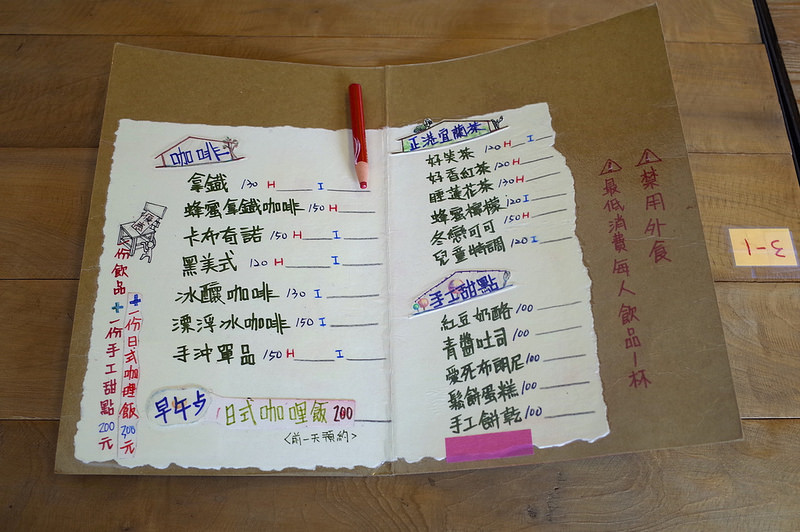 咖啡
拿鐵 130 H I
蜂蜜拿鐵咖啡 150 H
卡布奇諾 150 H I
黑美式 120 H I
冰釀咖啡 130 I
漂浮冰咖啡 150 I
手沖單品 150 H I
早午占
日式咖哩飯 200
<前一天預約>
份飲品+一份手工甜點200元
+一份日式咖哩飯300元
正港宜蘭茶
好笑茶 120 H
好香紅茶 120 H
睡蓮花茶 130 H
蜂蜜檸檬 120 I
冬戀可可 150 H
兒童特調 120 I
手工甜點
紅豆奶酪 100
青醬吐司 100
愛死布朗尼 100
鬆餅蛋糕 100
手工餅乾 100
禁用外食
最低消費每人飲品1杯
3-1